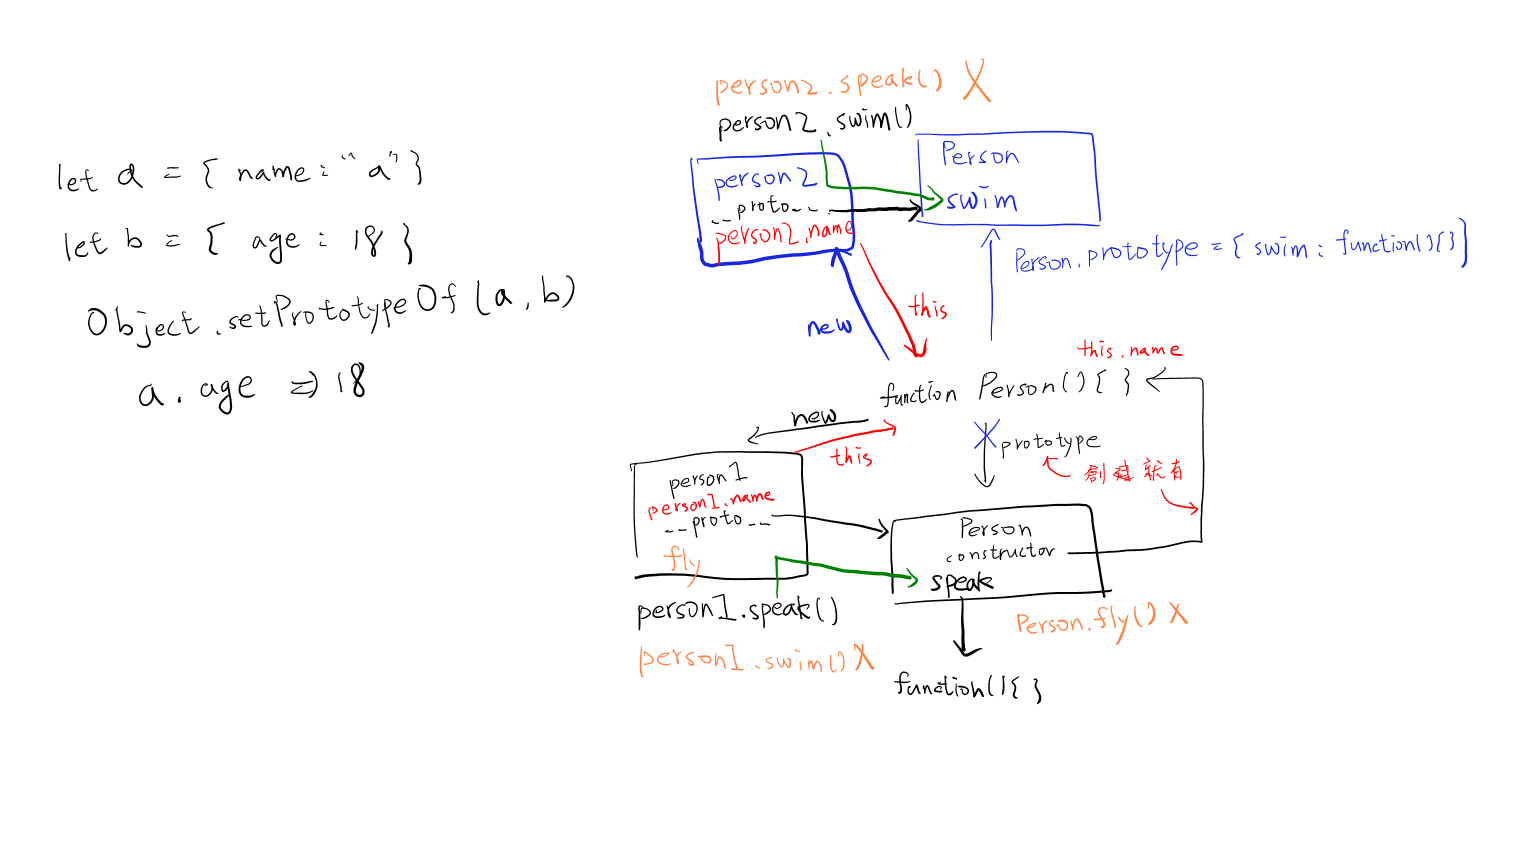 let a = { name : "a" }
let b = { age : 18 }
Object.setPrototypeOf (a, b)
a.age => 18
person2.speak() X
person2.swim()
person2
__proto__
person2.name
Person
swim
Person.prototype = { swim : function(){} }
new
this
this.name
function Person(){ }
new
this
prototype
創建就有
person1
person1.name
__proto__
fly
Person
constructor
speak
person1.speak()
person1.swim() X
Person.fly() X
function(){ }